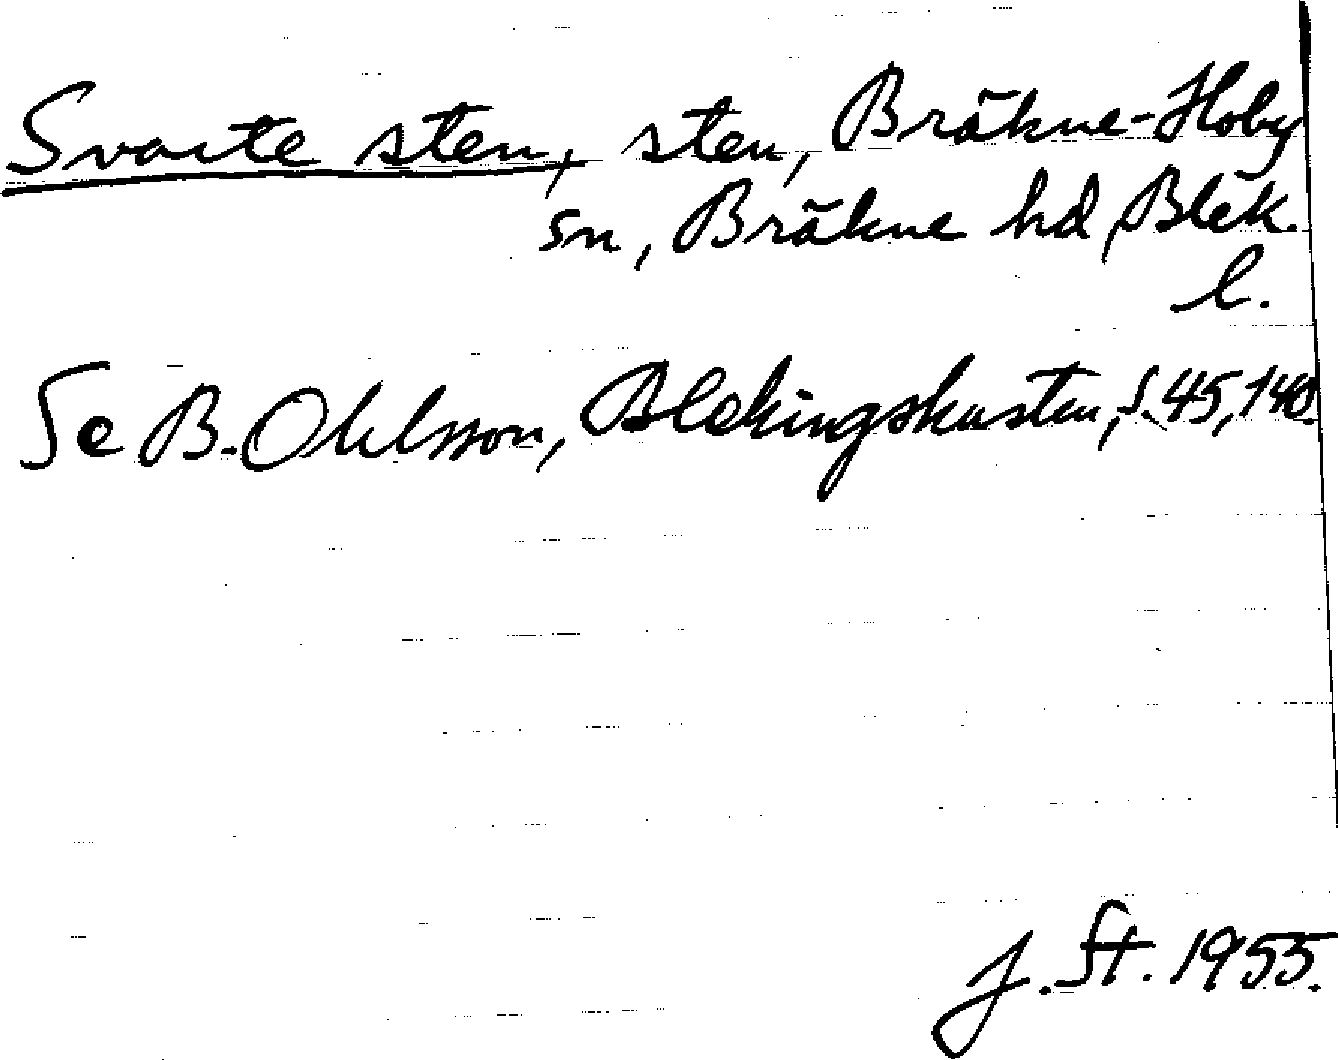 Svarte sten, sten, Bräkne-Hoby
sn, Bräkne hd, Blek.
l.
Se B. Ohlsson, Blekingskusten, s. 45, 140.
J. St. 1955.